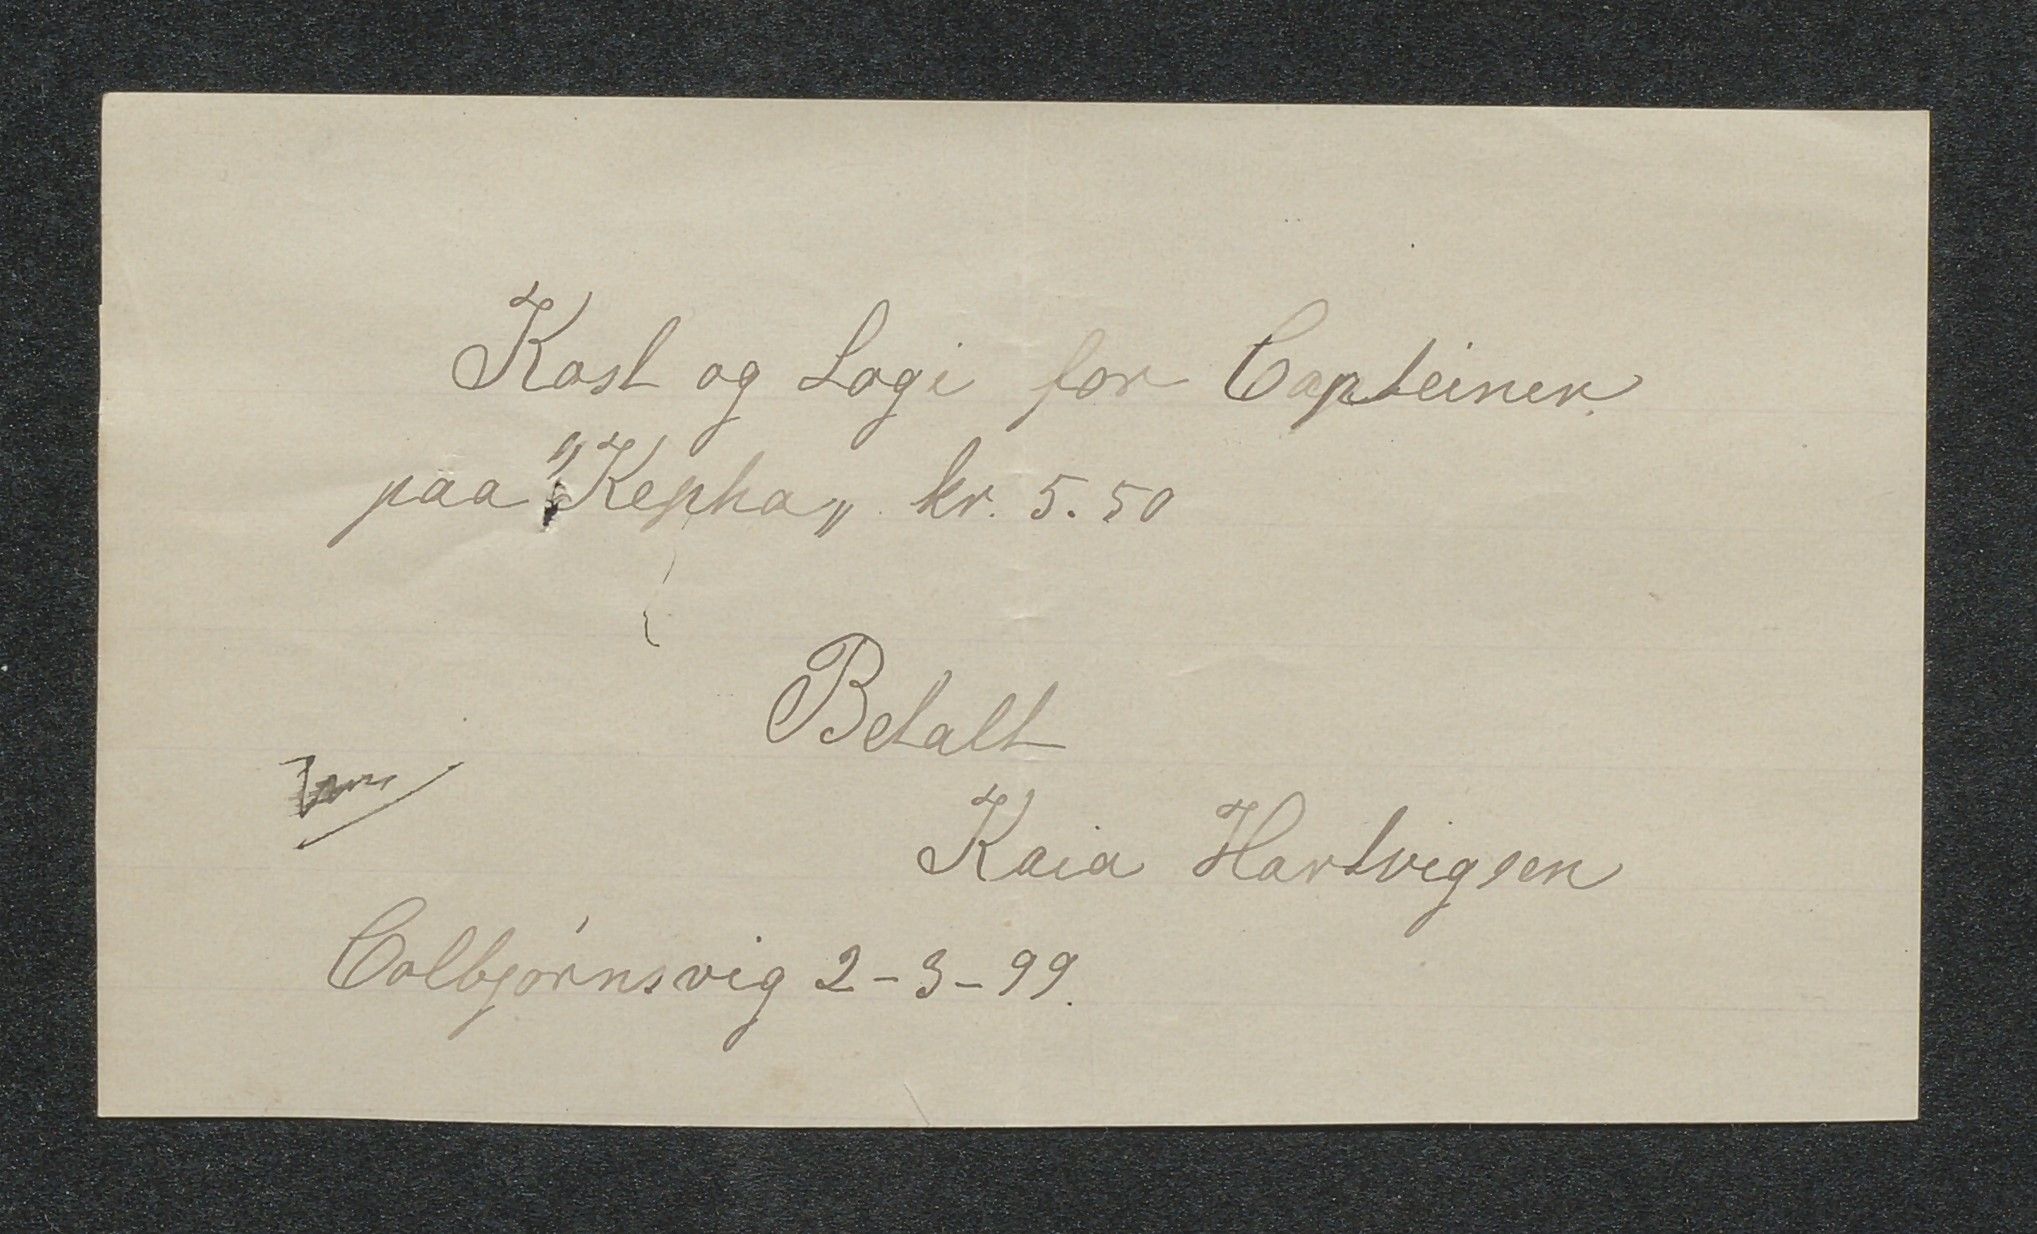 Kost og Logi for Capteinen
paa "Kepha" kr. 5.50
Betalt
Kaia Hartvigsen
Colbjørnsvig 2-3-99.